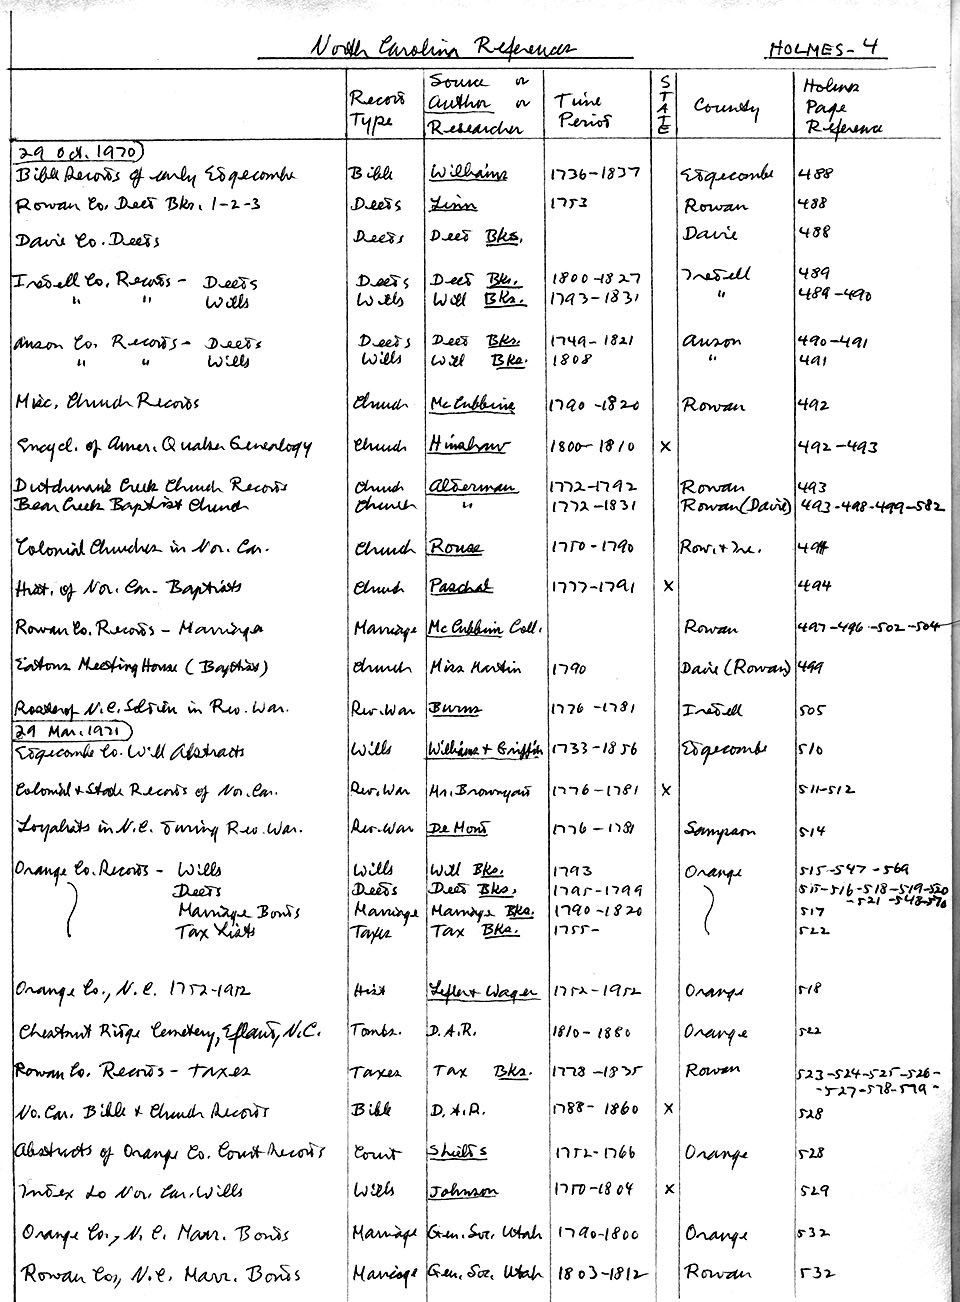 North Carolina References HOLMES-4
Record Type Source or Author or Researcher Time Period STATE County Holmes Page Reference
29 Oct. 1970
Bible Records of early Edgecombe Bible Williams 1736-1837 Edgecombe 488
Rowan Co. Deed Bks. 1-2-3 Deeds Linn 1753 Rowan 488
Davie Co. Deeds Deeds Deed Bks. Davie 488
Iredell Co. Records - Deeds Deeds Deed Bks. 1800-1827 Iredell 489
" " Wills Wills Will Bks. 1793-1831 " 489-490
Anson Co. Records - Deeds Deeds Deed Bks. 1749-1821 Anson 490-491
" " Wills Wills Will Bks. 1808 " 491
Misc. Church Records Church McCubbins 1790-1820 Rowan 492
Encycl. of Amer. Quaker Genealogy Church Hinshaw 1800-1810 X 492-493
Dutchman's Creek Church Records Church Alderman 1772-1792 Rowan 493
Bear Creek Baptist Church Church " 1772-1831 Rowan (Davie) 493-498-499-582
Colonial Churches in Nor. Car. Church Rouse 1750-1790 Row. + Ire. 494
Hist. of Nor. Car. Baptists Church Paschal 1777-1791 X 494
Rowan Co. Records - Marriage Marriage McCubbin Coll. Rowan 497-496-502-504
Eatons Meeting House (Baptist) Church Miss Martin 1790 Davie (Rowan) 499
Roster of N.C. Soldiers in Rev. War. Rev. War Burns 1776-1781 Iredell 505
29 Mar. 1971
Edgecombe Co. Will Abstracts Wills Williams + Griffin 1733-1856 Edgecombe 510
Colonial + State Records of Nor. Car. Rev. War Mr. Brownyard 1776-1781 X 511-512
Loyalists in N.C. During Rev. War. Rev. War DeMond 1776-1781 Sampson 514
Orange Co. Records - Wills Wills Will Bks. 1793 Orange 515-547-569
Deeds Deeds Deed Bks. 1795-1799 515-516-518-519-520
-521-548-570
Marriage Bonds Marriage Marriage Bks. 1790-1820 517
Tax Lists Taxes Tax Bks. 1755- 522
Orange Co., N.C. 1752-1952 Hist Lefler + Wager 1752-1952 Orange 518
Chestnut Ridge Cemetery, Efland, N.C. Tombs. D.A.R. 1810-1880 Orange 522
Rowan Co. Records - Taxes Taxes Tax Bks. 1778-1835 Rowan 523-524-525-526-
-527-578-579-
No. Car. Bible + Church Records Bible D.A.R. 1788-1860 X 528
Abstracts of Orange Co. Court Records Court Shields 1752-1766 Orange 528
Index to Nor. Car. Wills Wills Johnson 1750-1804 X 529
Orange Co., N.C. Marr. Bonds Marriage Gen. Soc. Utah 1790-1800 Orange 532
Rowan Co., N.C. Marr. Bonds Marriage Gen. Soc. Utah 1803-1812 Rowan 532